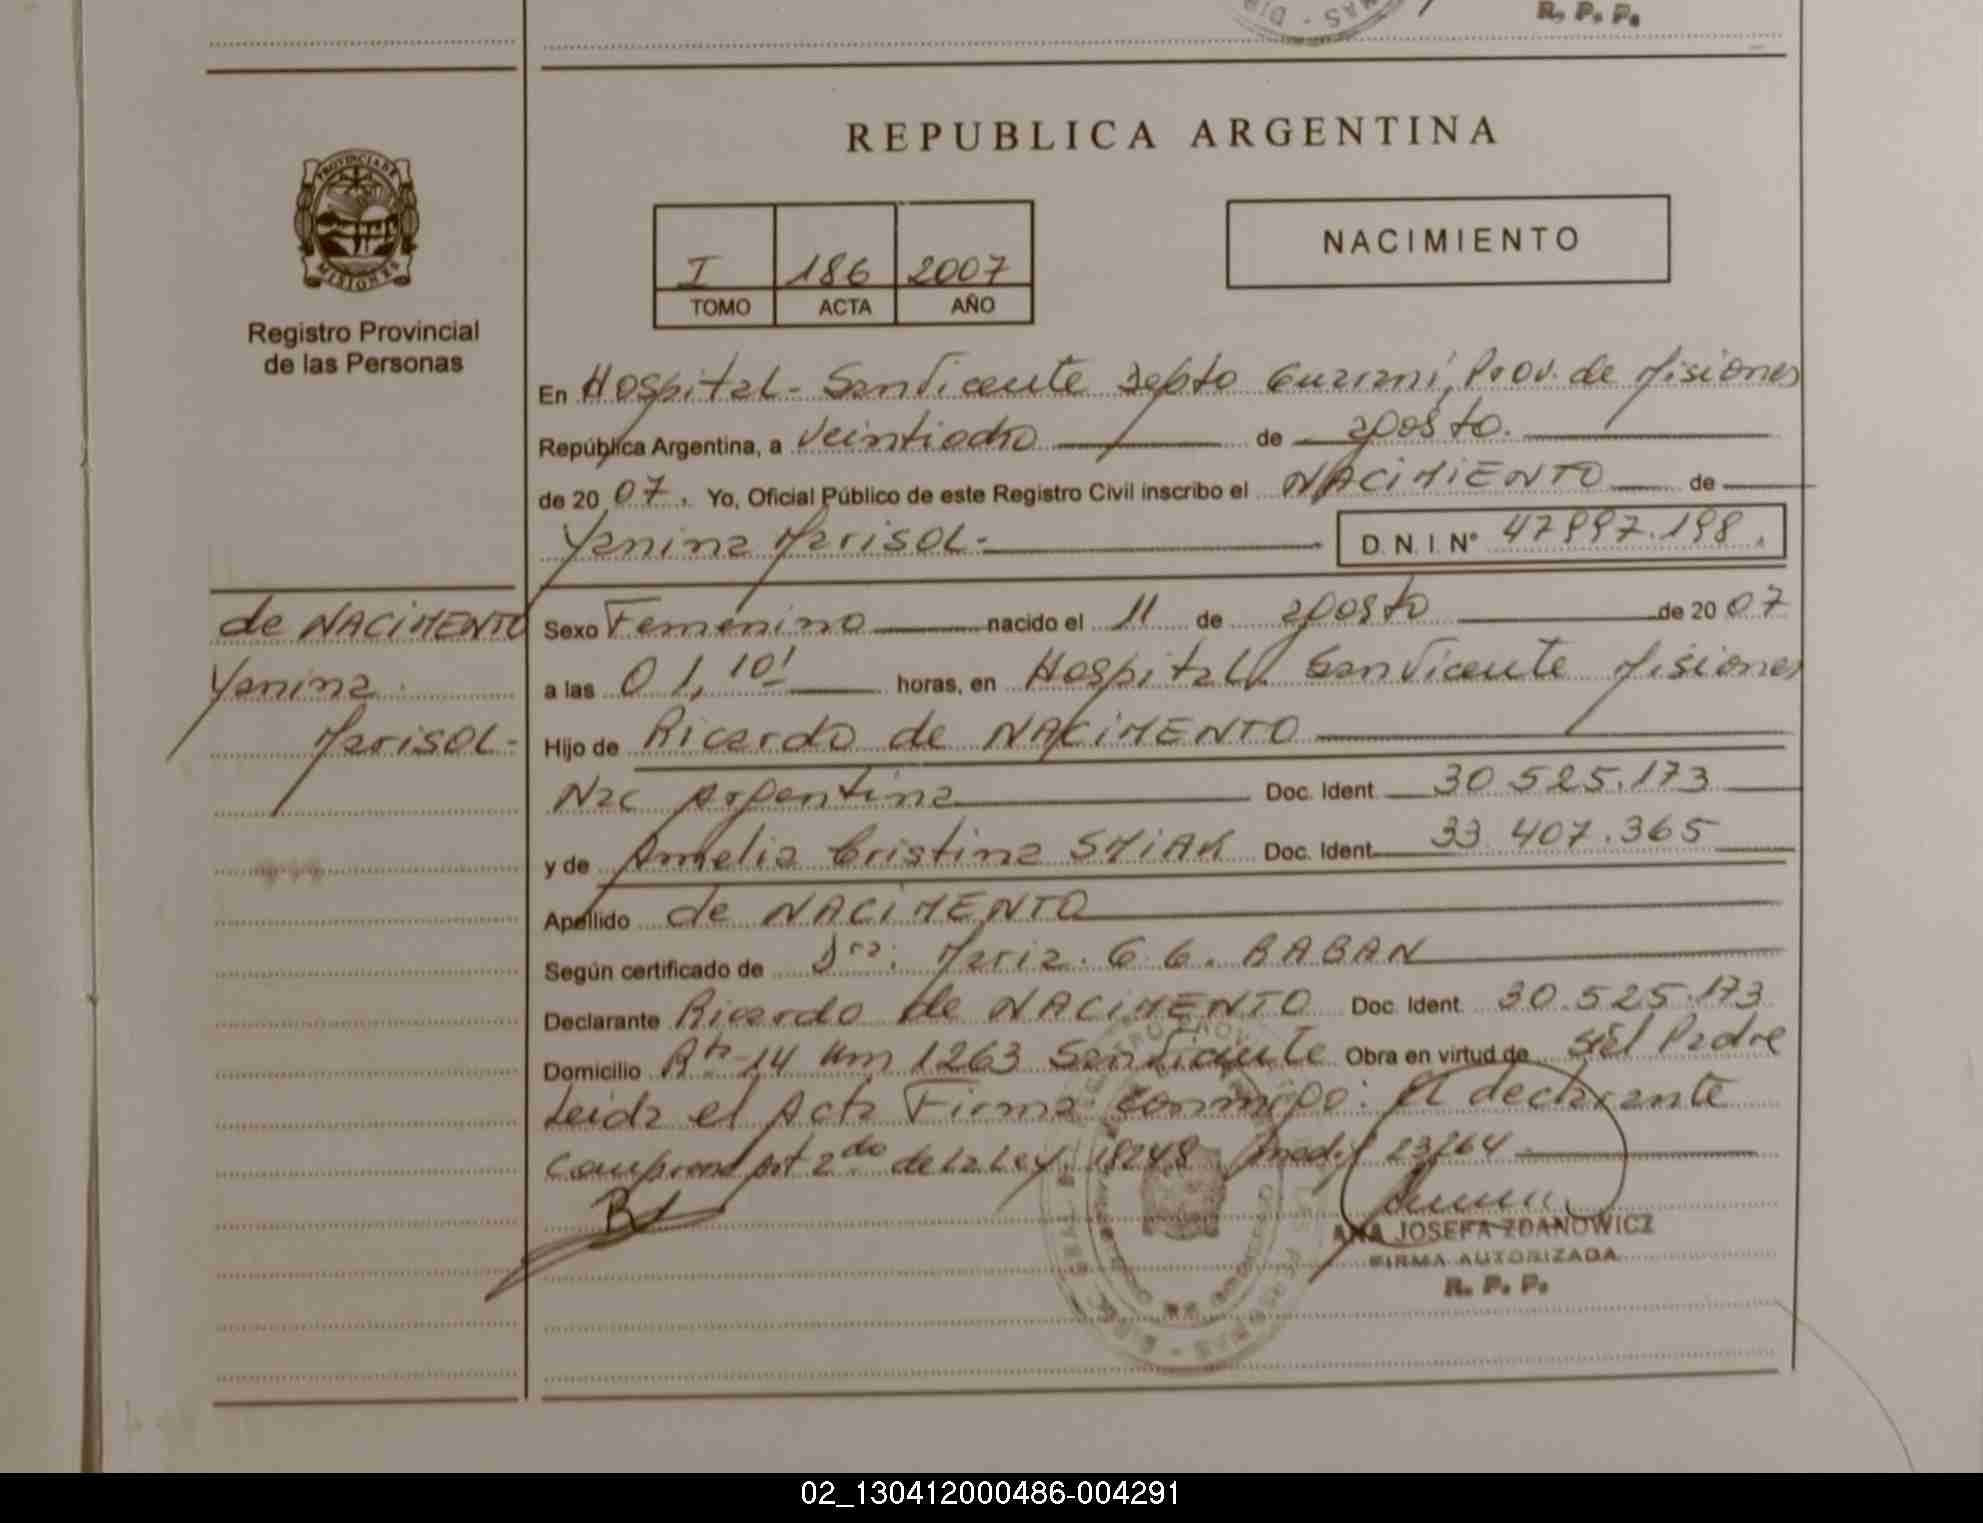 R. P. P.
REPUBLICA ARGENTINA
PROVINCIA DE
MISIONES
Registro Provincial
de las Personas
I 186 2007
TOMO ACTA AÑO
NACIMIENTO
En Hospital - San Vicente Depto Guarani, Prov. de Misiones
República Argentina, a veintiocho de agosto.
de 20 07. Yo, Oficial Público de este Registro Civil inscribo el NACIMIENTO de
Yanina Marisol.- D. N. I. N° 47997.198.
de NACIMENTO
Yanina
Marisol-
Sexo Femenino nacido el 11 de agosto de 20 07
a las 01,10' horas, en Hospital San Vicente Misiones
Hijo de Ricardo de NACIMENTO
Nac Argentina Doc. Ident. 30 525.173
y de Amelia Cristina SMIAK Doc. Ident. 33 407.365
Apellido de NACIMENTO
Según certificado de Dra: Maria. G. G. BABAN
Declarante Ricardo de NACIMENTO Doc. Ident. 30.525.173
Domicilio Rta-14 Km 1263 San Vicente Obra en virtud de Padre
Leida el Acta Firma conmigo: El declarante
art 2do de la Ley 18248 modif 23264
ANA JOSEFA ZDANOWICZ
FIRMA AUTORIZADA
R. P. P.
02_130412000486-004291